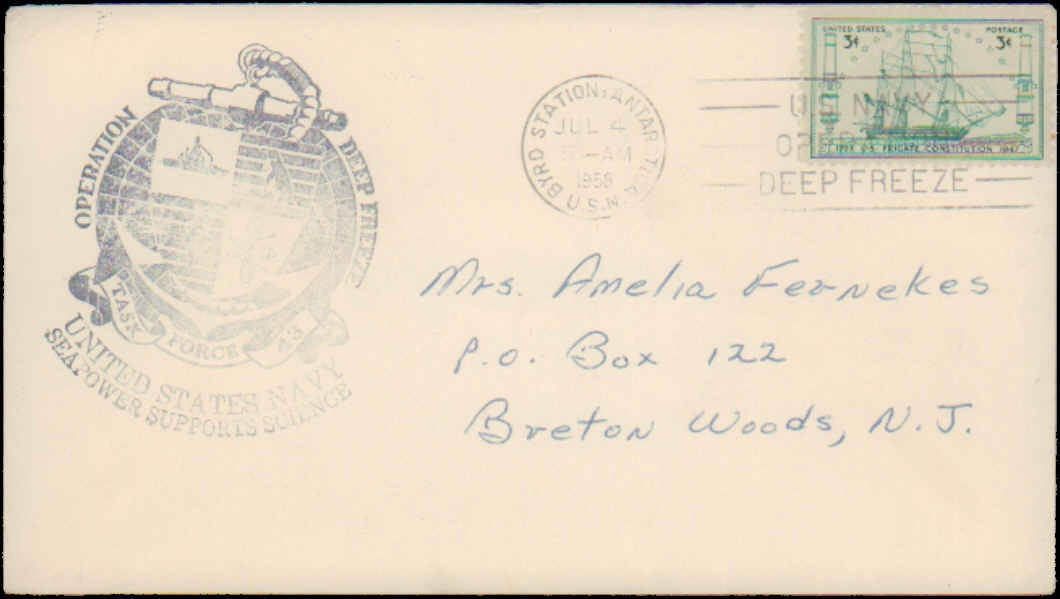 OPERATION DEEP FREEZE
TASK FORCE 43
UNITED STATES NAVY
SEAPOWER SUPPORTS SCIENCE
BYRD STATION, ANTARCTICA
JUL 4
AM
1958
U.S.N.
U.S. NAVY
DEEP FREEZE
UNITED STATES POSTAGE
3¢ 3¢
1797 U.S. FRIGATE CONSTITUTION 1947
Mrs. Amelia Fernekes
P.O. Box 122
Breton Woods, N.J.